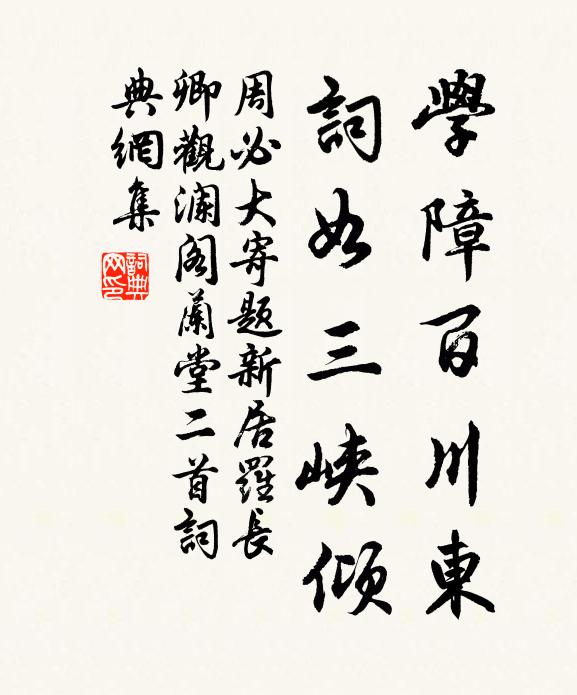 學障百川東
詞如三峽傾
周必大寄題新居羅長
卿觀瀾閣蘭堂二首詞
典網集
詞典
网印